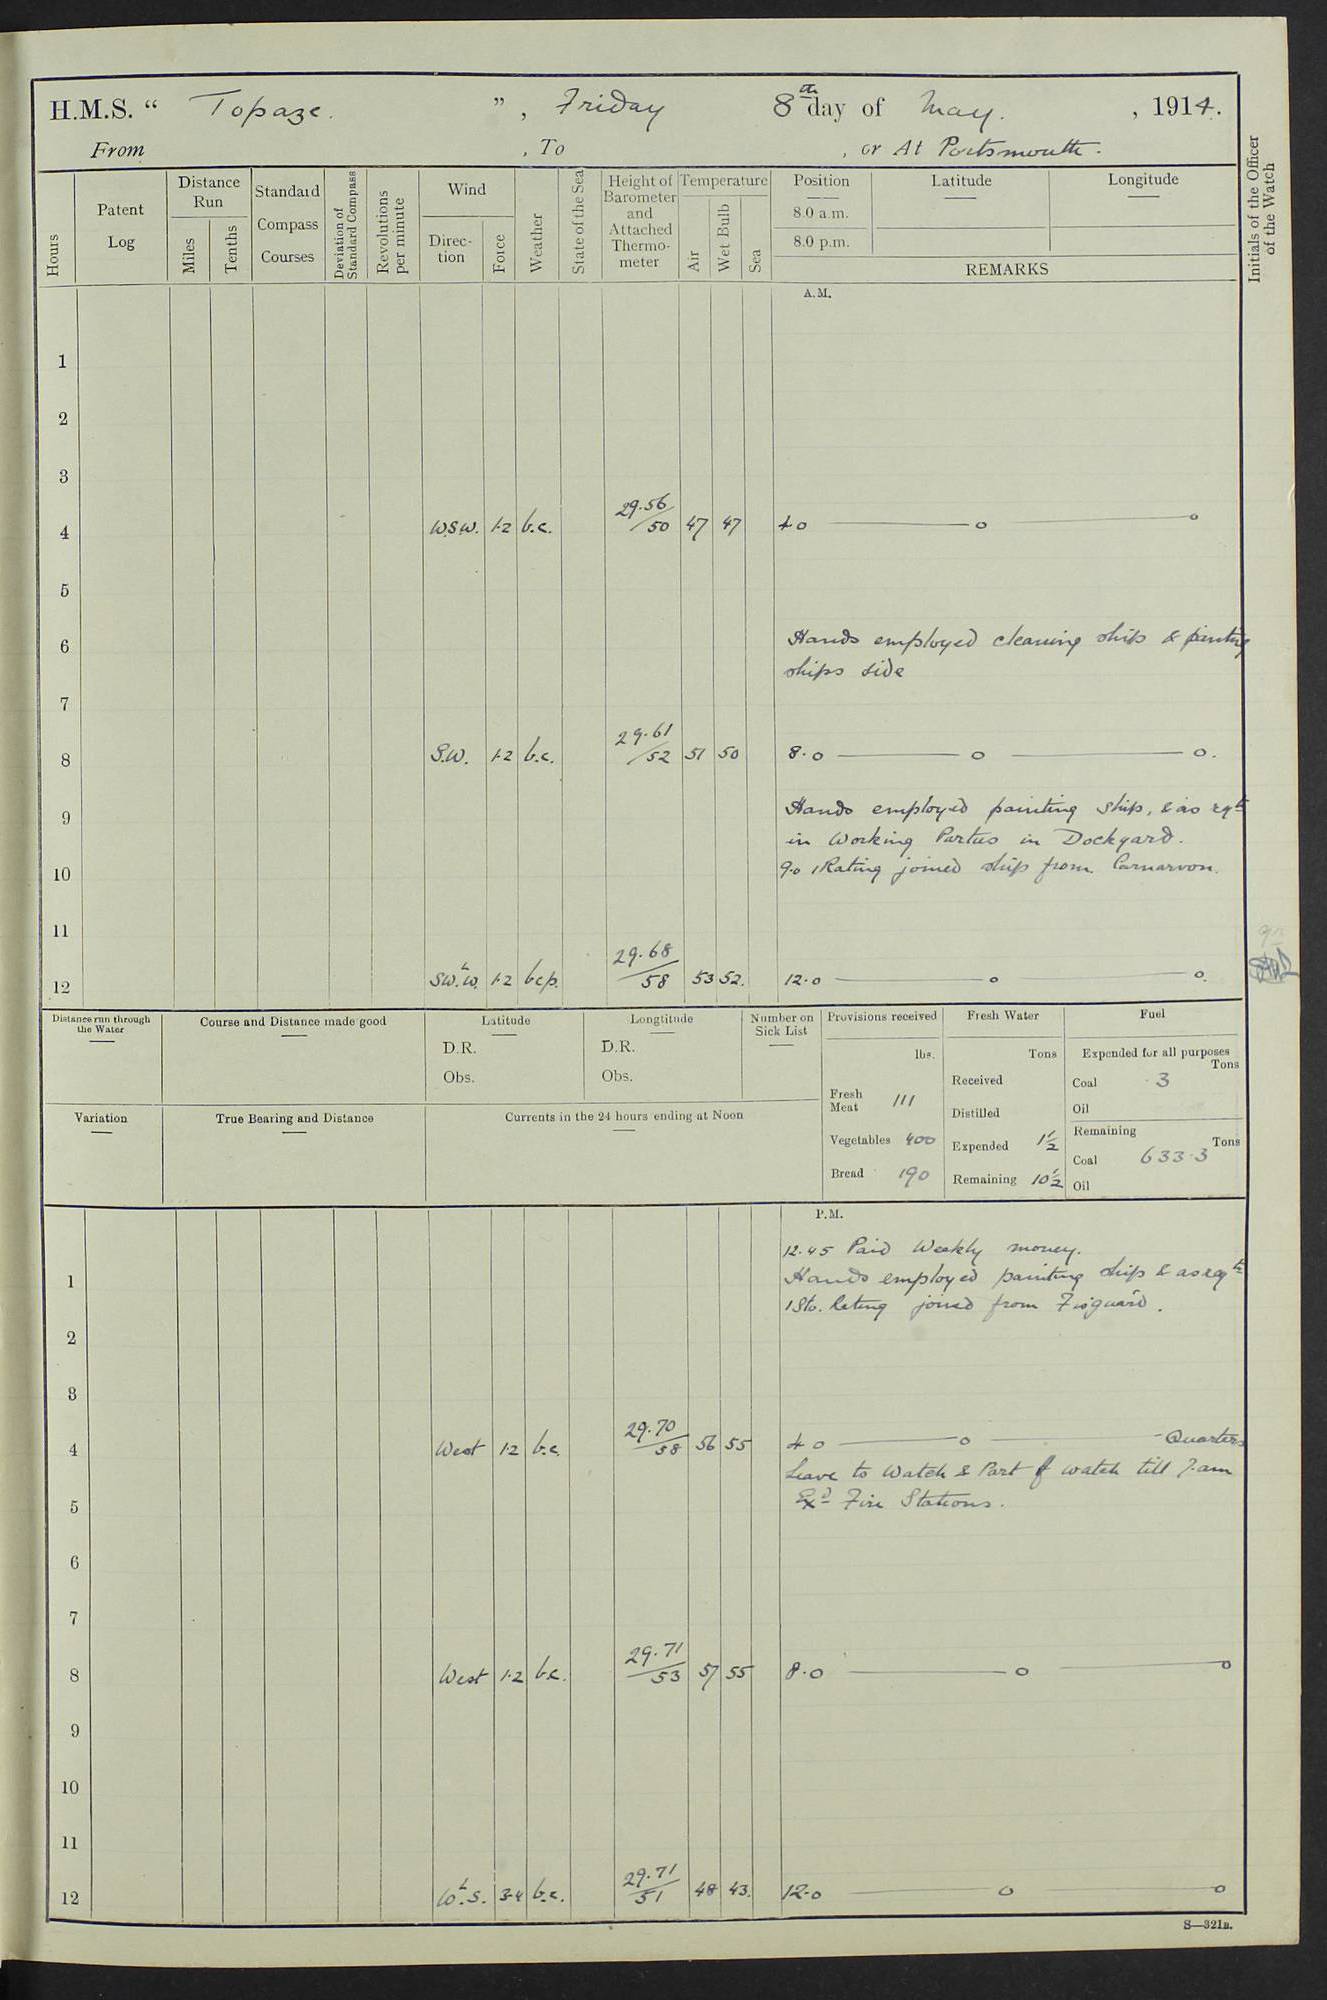 H.M.S. “ Topaze. ”, Friday 8th day of May. , 1914.
From , To , or At Portsmouth.
Hours
Patent Log
Distance Run
Miles
Tenths
Standard Compass Courses
Deviation of Standard Compass
Revolutions per minute
Wind
Direc-tion
Force
Weather
State of the Sea
Height of Barometer and Attached Thermo-meter
Temperature
Air
Wet Bulb
Sea
Position
8.0 a.m.
8.0 p.m.
Latitude
Longitude
REMARKS
Initials of the Officer of the Watch
A.M.
1
2
3
4 W.S.W. 1-2 b.c. 29.56/50 47 47 4.0 — o — o
5
6 Hands employed cleaning ship & painting
ships side
7
8 S.W. 1-2 b.c. 29.61/52 51 50 8.0 — o — o.
9 Hands employed painting ship, & as reqte
in Working Parties in Dockyard.
10 9.0 1 Rating joined ship from Carnarvon.
11
12 SW.bW. 1-2 bcp. 29.68/58 53 52. 12.0 — o — o.
Distance run through the Water
Course and Distance made good
Latitude
D.R.
Obs.
Longtitude
D.R.
Obs.
Number on Sick List
Provisions received
lbs.
Fresh Meat 111
Vegetables 400
Bread 190
Fresh Water
Tons
Received
Distilled
Expended 1½
Remaining 10½
Fuel
Expended for all purposes
Tons
Coal 3
Oil
Remaining
Tons
Coal 633.3
Oil
Variation
True Bearing and Distance
Currents in the 24 hours ending at Noon
P.M.
12.45 Paid Weekly money.
1 Hands employed painting ship & as reqte
1 Sto. Rating joined from Fisguard.
2
3
4 West 1-2 b.c. 29.70/58 56 55 4.0 — o — Quarters
Leave to Watch & Part of watch till 7.am
5 Exd Fire Stations.
6
7
8 West 1-2 b.c. 29.71/53 57 55 8.0 — o — o
9
10
11
12 WbS. 3-4 b.c. 29.71/51 48 43. 12.0 — o — o
S—321B.